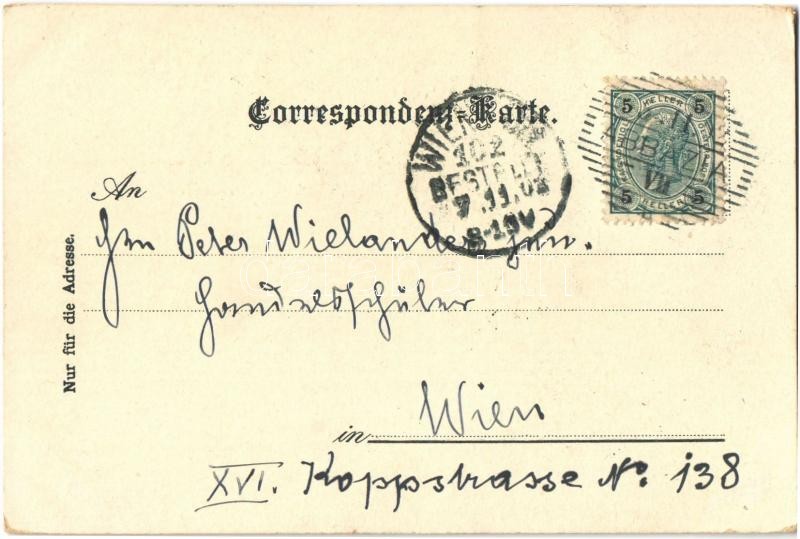 Correspondenz-Karte.
5 HELLER 5
5 HELLER 5
ABBAZIA
WIEN
102
BESTELLT
7.11.02
8-10V
An
Hrn Peter Wielander jun.
Handelsschüler
Wien
in
XVI. Koppstrasse No. 138
Nur für die Adresse.